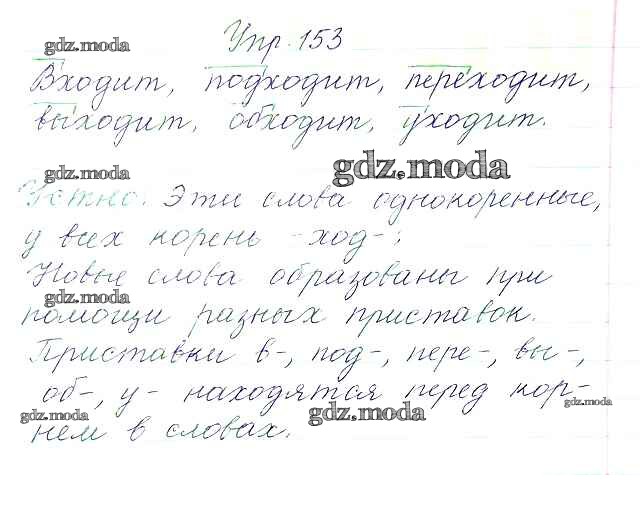 gdz.moda
Упр. 153
Входит, подходит, переходит,
выходит, обходит, уходит.
gdz.moda
gdz.moda
Устно. Эти слова однокоренные,
у всех корень -ход-;
Новые слова образованы при
gdz.moda
помощи разных приставок.
Приставки в-, под-, пере-, вы-,
об-, у- находятся перед кор-
gdz.moda
gdz.moda
gdz.moda
нем в словах.